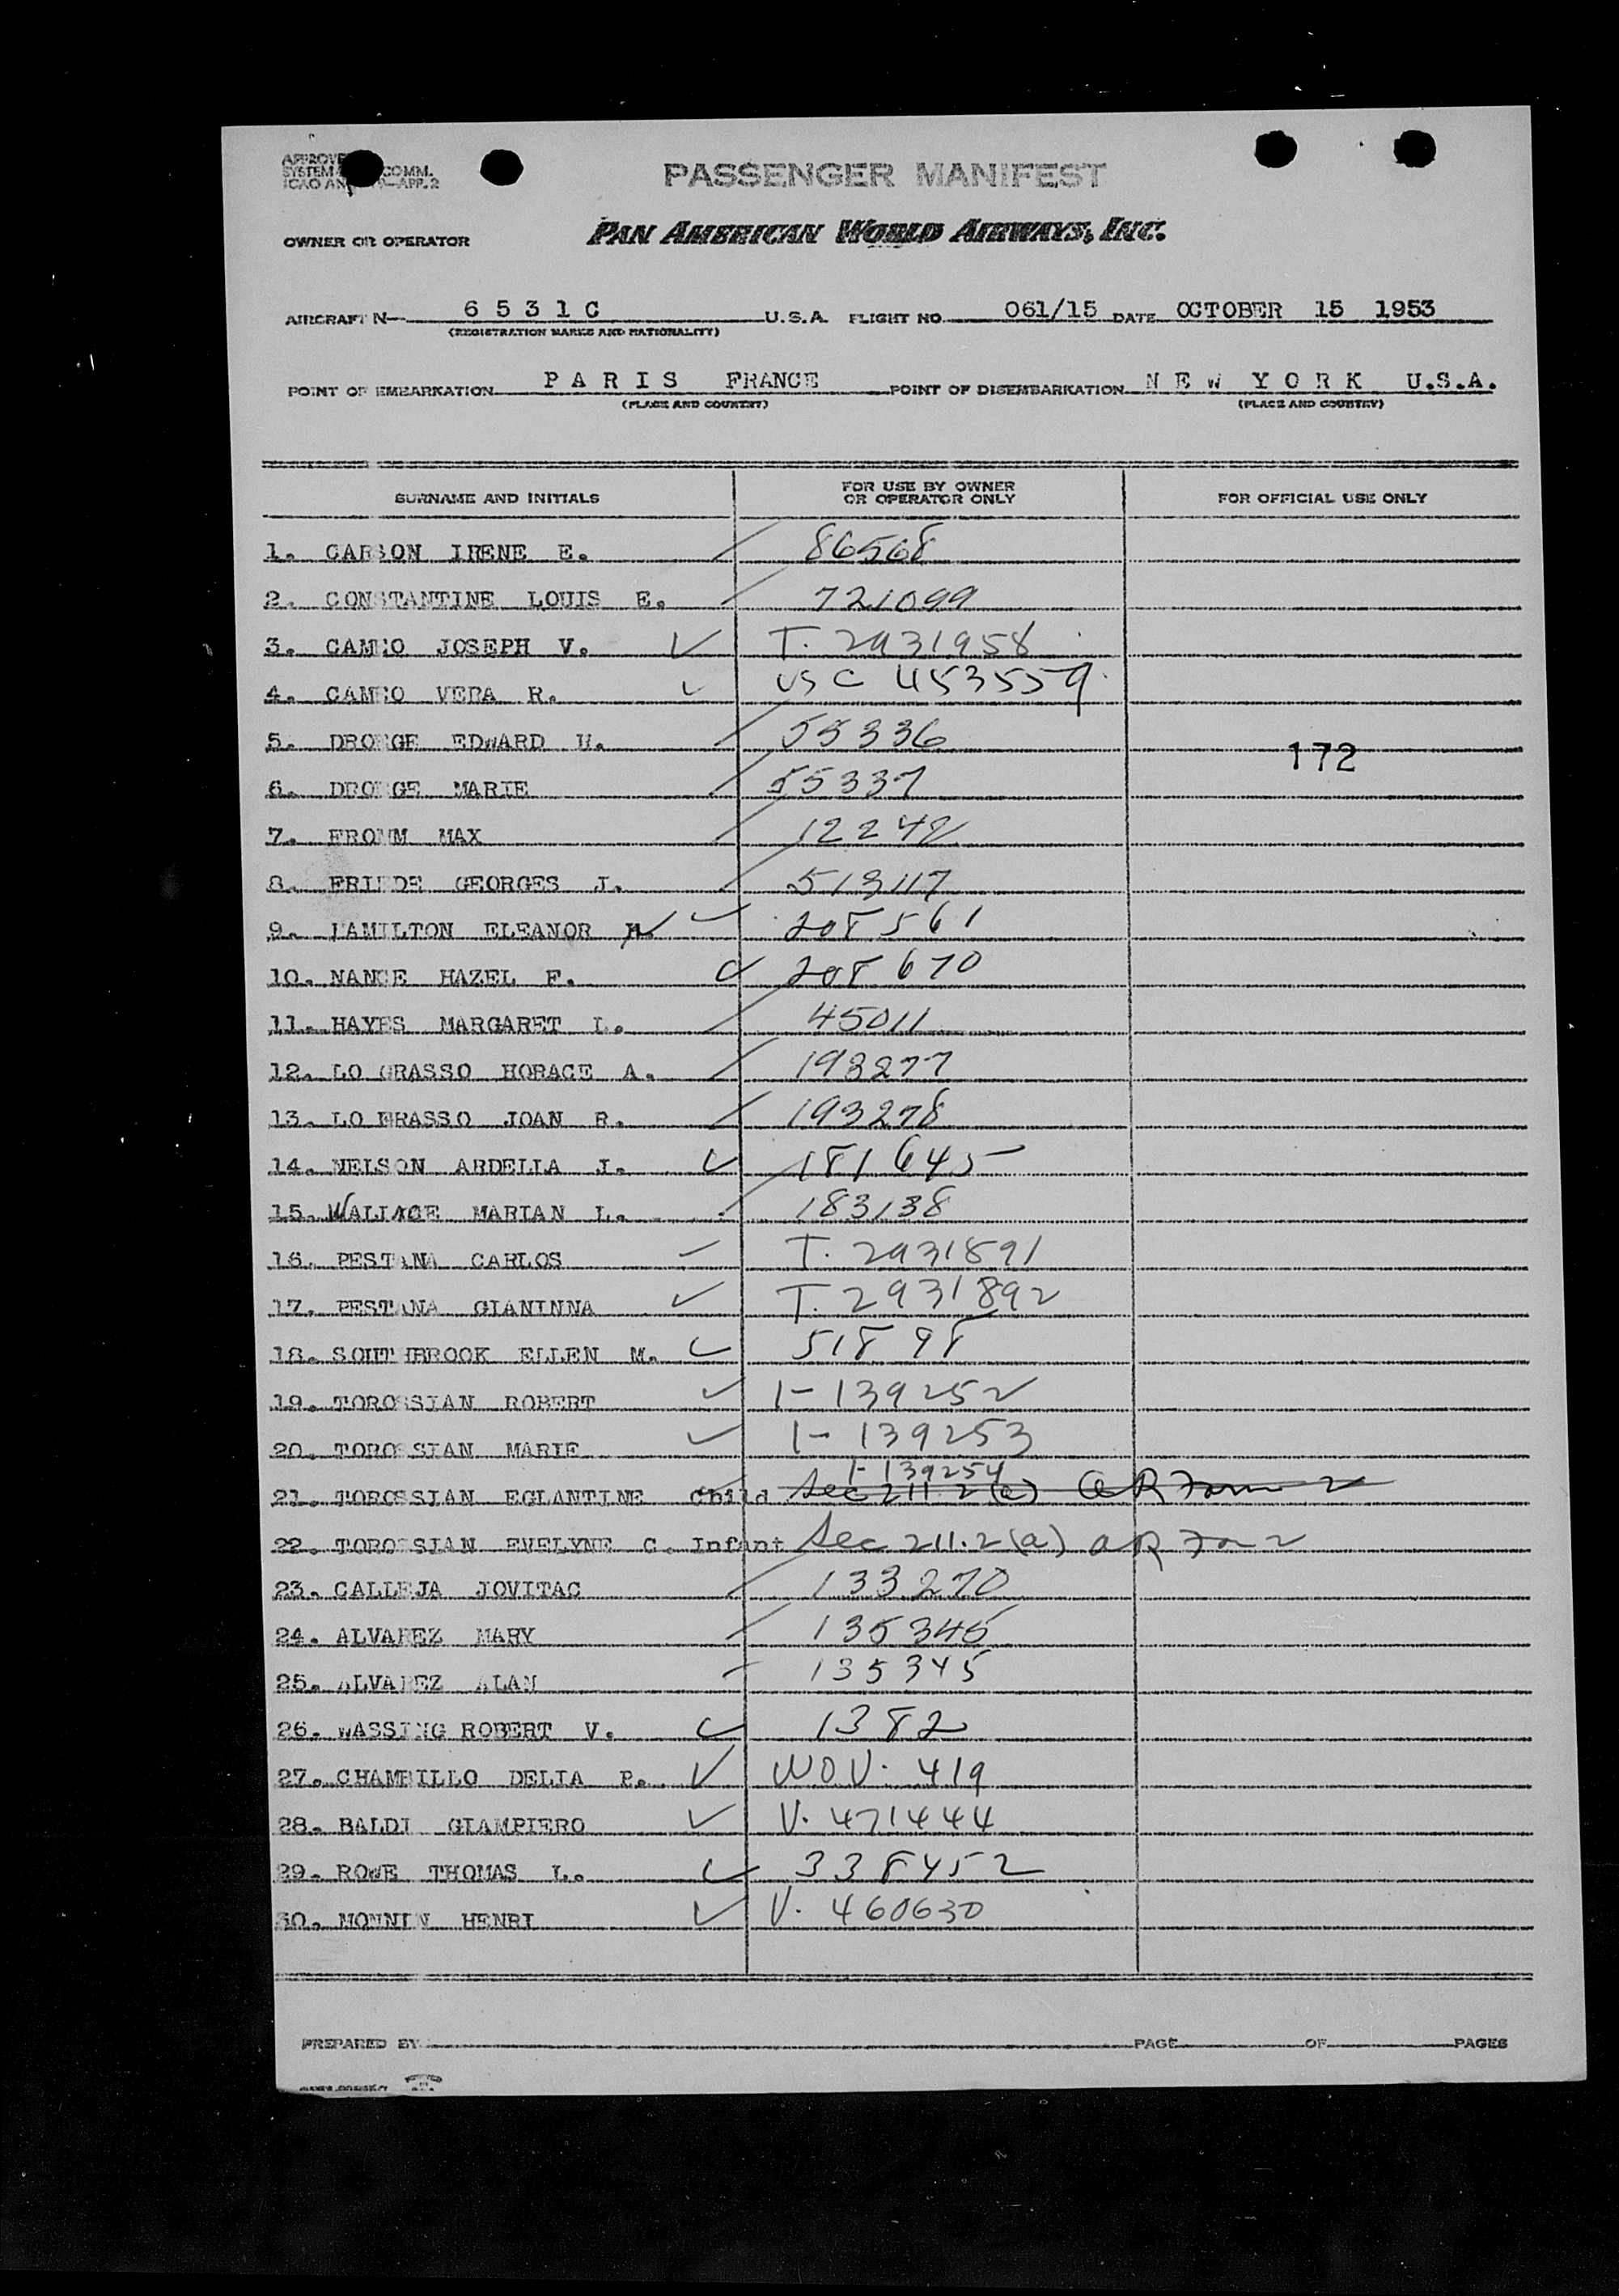 PASSENGER MANIFEST
OWNER OR OPERATOR PAN AMERICAN WORLD AIRWAYS, INC.
AIRCRAFT N 6 5 3 1 C U.S.A. FLIGHT NO. 061/15 DATE OCTOBER 15 1953
(REGISTRATION MARKS AND NATIONALITY)
POINT OF EMBARKATION P A R I S FRANCE POINT OF DISEMBARKATION N E W Y O R K U.S.A.
(PLACE AND COUNTRY) (PLACE AND COUNTRY)
SURNAME AND INITIALS FOR USE BY OWNER OR OPERATOR ONLY FOR OFFICIAL USE ONLY
1. CARSON IRENE E. 86568
2. CONSTANTINE LOUIS E. 721099
3. JOSEPH V. T. 2931958
4. VERA R. USC 453559
5. DROEGE EDWARD U. 55336
172
6. DROEGE MARIE 55337
7. FROMM MAX 12242
8. FRIEDE GEORGES J. 513117
9. HAMILTON ELEANOR 208561
10. NANCE HAZEL F. 208670
11. HAYES MARGARET L. 45011
12. LO GRASSO HORACE A. 193277
13. LO GRASSO JOAN R. 193278
14. NELSON ARDELLA J. 181645
15. WALLACE MARIAN L. 183138
16. PESTANA CARLOS T. 2931891
17. PESTANA GIANINNA T. 2931892
18. SOUTHBROOK ELLEN M. 51898
19. TOROSSIAN ROBERT I-139252
20. TOROSSIAN MARIE I-139253
I-139254
21. TOROSSIAN EGLANTINE Child Sec 211.2(a) AR Form 2
22. TOROSSIAN EVELYNE C. Infant Sec 211.2(a) AR 2
23. CALLEJA JOVITAC 133270
24. ALVAREZ MARY 135345
25. ALVAREZ ALAN 135345
26. WASSING ROBERT V. 1382
27. CHAMBILLO DELIA P. WOV. 419
28. BALDI GIAMPIERO V. 471444
29. ROWE THOMAS L. 338452
30. MONNIN HENRI V. 460630
PREPARED BY PAGE OF PAGES